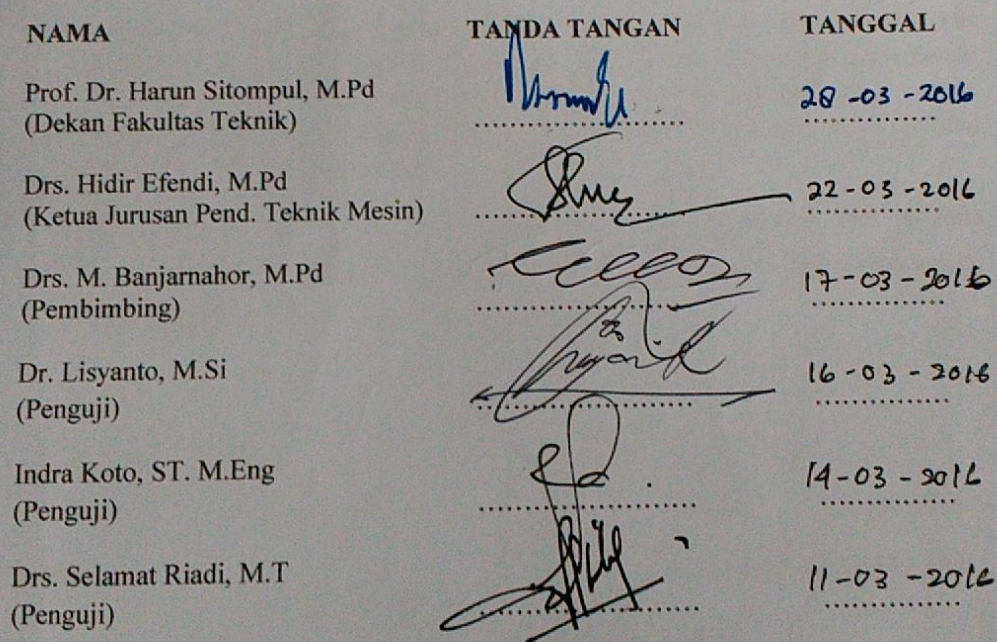 NAMA TANDA TANGAN TANGGAL
Prof. Dr. Harun Sitompul, M.Pd
(Dekan Fakultas Teknik) .................... 28-03-2016
Drs. Hidir Efendi, M.Pd
(Ketua Jurusan Pend. Teknik Mesin) .................... 22-03-2016
Drs. M. Banjarnahor, M.Pd
(Pembimbing) .................... 17-03-2016
Dr. Lisyanto, M.Si
(Penguji) .................... 16-03-2016
Indra Koto, ST. M.Eng
(Penguji) .................... 14-03-2016
Drs. Selamat Riadi, M.T
(Penguji) .................... 11-03-2016